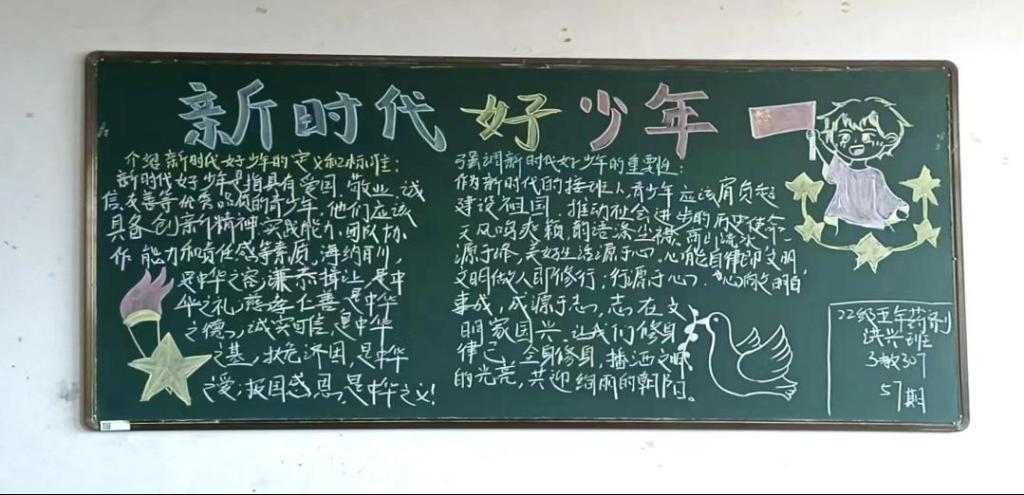 新时代好少年
介绍新时代好少年的定义和标准：
新时代好少年是指具有爱国、敬业、诚
信、友善等优秀品质的青少年，他们应该
具备创新精神、实践能力、团队协
作能力和责任感等素质，海纳百川，
是中华之容；谦恭揖让，是中
华之礼；慈孝仁善，是中华
之德，诚实可信，是中华
之基，扶危济困，是中华
之爱；报国感恩，是中华之义！
强调新时代好少年的重要性：
作为新时代的接班人，青少年应该肩负起
建设祖国、推动社会进步的历史使命
天风鸣爽籁，前语涤尘襟，高山流水
源于峰，美好生活源于心，心能自律即文明
文明做人即修行，行源于心，心向文明自
事成，成源于志，志在文
明教国兴，让我们修身
律己，全身修身，播洒文明
的光亮，共迎绚丽的朝阳。
22级五年药剂
洪兴班
3教307
57期